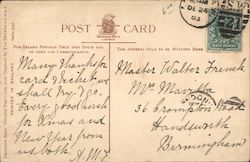 DE 24
03
POST CARD
FOR INLAND POSTAGE ONLY THIS SPACE MAY
BE USED FOR COMMUNICATION.
THE ADDRESS ONLY TO BE WRITTEN HERE
Many Thanks for
card & ticket we
shall try & go.
Every good wish
for Xmas and
New Year from
us both.
Master Walter French
36 Crompton
Handsworth
Birmingham